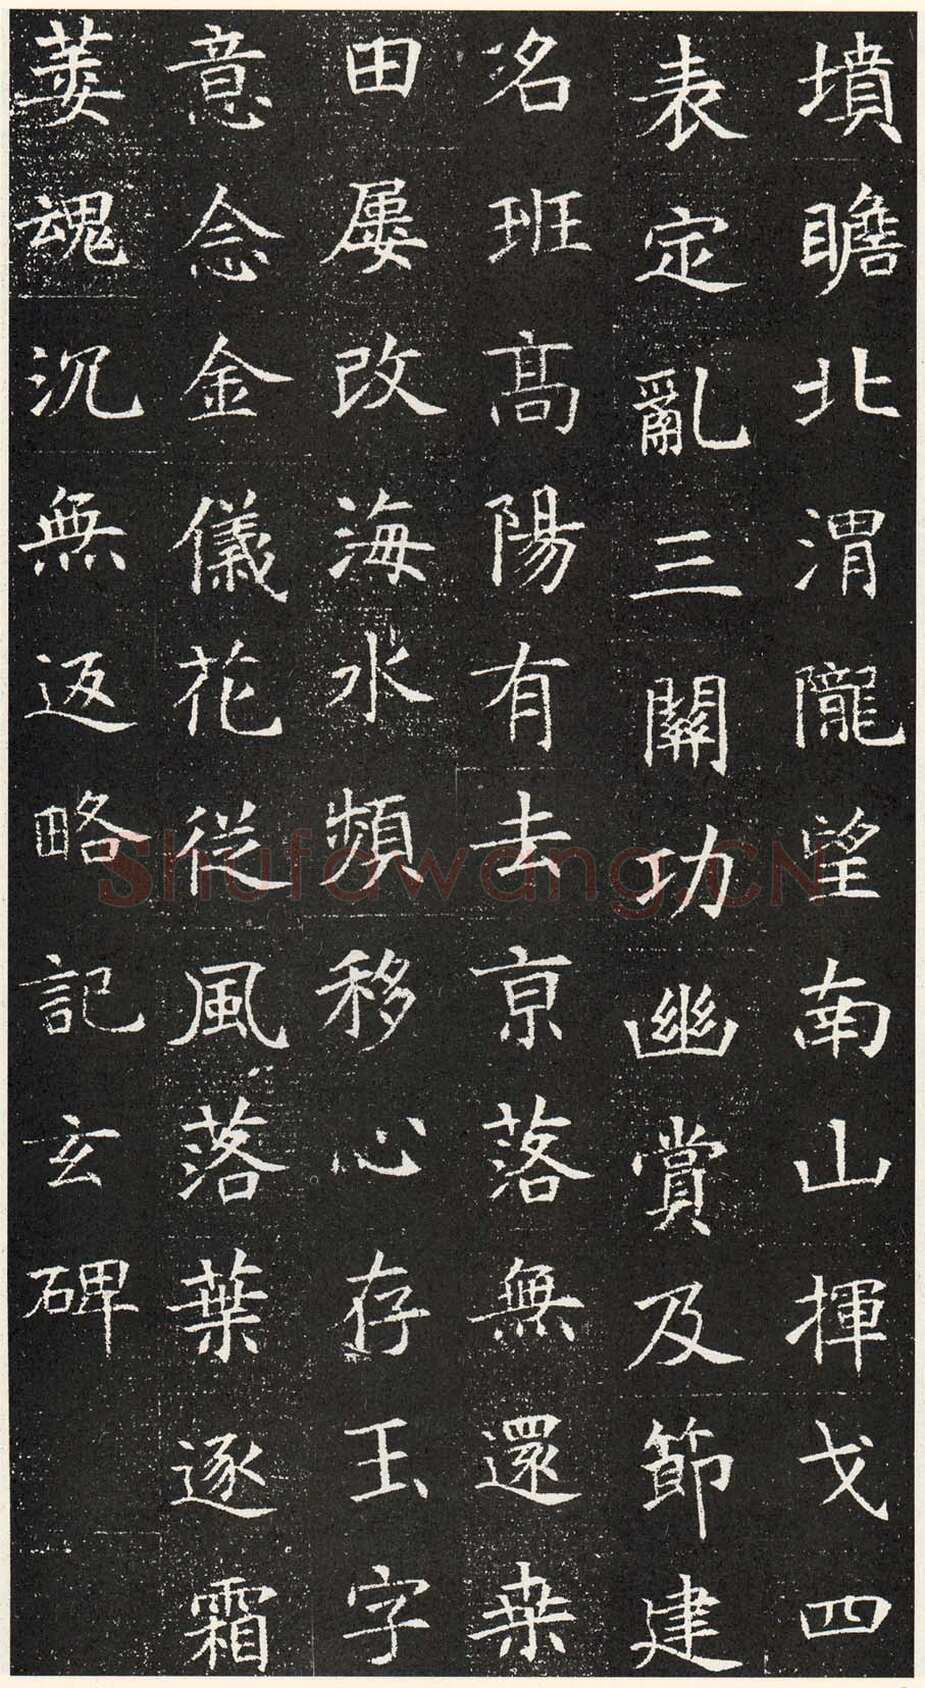 墳瞻北渭隴望南山揮戈四
表定亂三關功幽賞及節建
名班髙陽有去亰落無還桒
田屢改海水頻移心存玉字
意念金儀花從風落葉逐霜
萎魂沉無返略記玄碑
Shufawang.CN